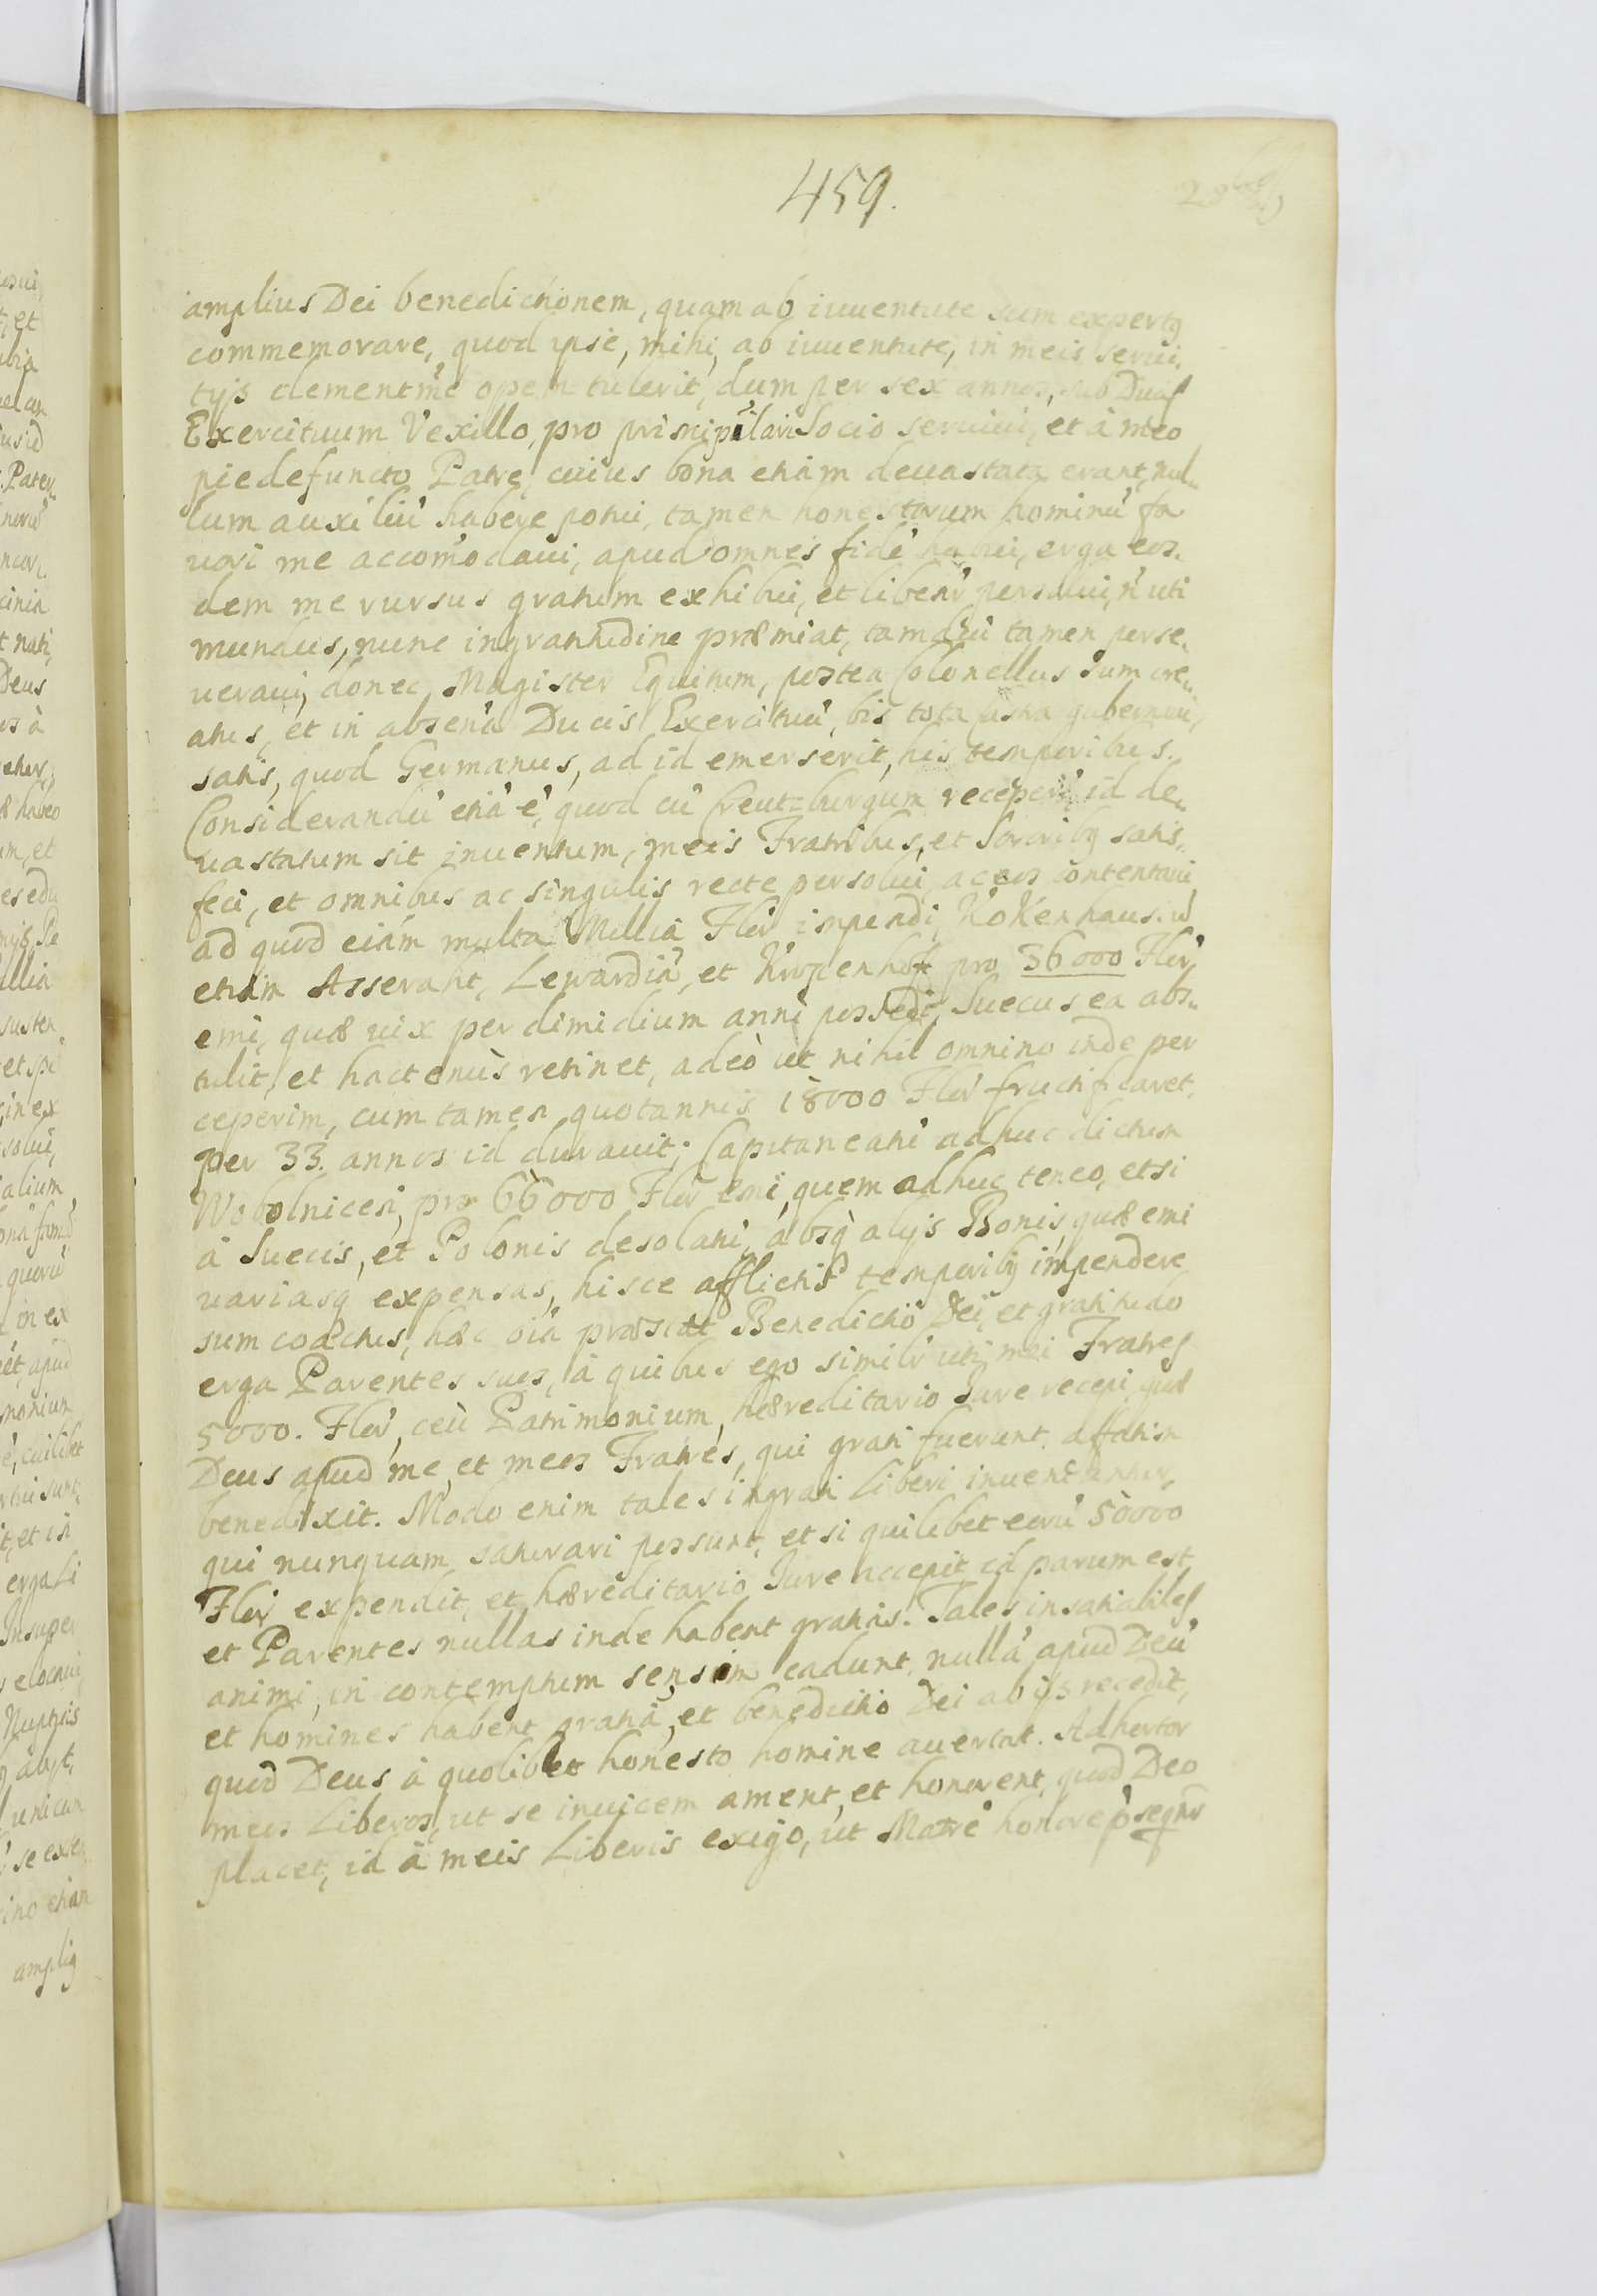 459.
amplius Dei benedictionem, quam ab iuuentute sum expertq
commemorare, quod ipse, mihi, ab iuuentute, in meis serui,
tijs clementme opem tulerit, dum per sex annos, sub Ducis
Exercituum Vexillo, pro principilari Socio seruiui, et à meo
pie defuncto Patre, cuius bona etiam deuastata erant, nul„
lum auxiliū habere potui, tamen honestorum hominū fa
uori me accomodaui, apud omnes fidē habui, erga eos„
dem me rursus gratum exhibui, et libentr persolui, n̄ uti
mundus, nunc ingratitudine præmiat, tamdiu tamen perse„
ueraui, donec, Magister Equitum, postea Colonellus sum cre„
atus, et in absentia Ducis Exercituū, bis tota castra gubernaui,
satis, quod Germanus, ad id emerserit, his temporibus.
Considerandū etiā ē, quod cū Creutzburgum receperī, id de„
uastatum sit inuentum, meis Fratribus, et Sororibq satis„
feci, et omnibus ac singulis recte persolui, ac eos contentaui
ad quod etiam multa Millia Flor̄ impendi, Kokenhausū
etiam Asseraht, Lewardiā, et Kropenhoff pro 36000 Flor̄
emi, quæ uix per dimidium anni possedi, Suecus ea abs„
tulit, et hactenùs retinet, adeò ut nihil omnino inde per
ceperim, cum tamen quotannis 18000 Flor̄ fructificaret.
per 33. annos id durauit; Capitaneatū adhuc dictum
Wobolnicen, pro 66000 Flor̄ emi, quem adhuc teneo, etsi
à Suecis, et Polonis desolatū, absq alijs Bonis, quæ emi
uariasq expensas, hisce afflictis temporibq impendere
sum coactus, hæc oīa præstat Benedictio Dei, et gratitudo
erga Parentes suos, à quibus ego similr uti mei Fratres
5000. Flor̄, ceù Patrimonium, hæreditario Jure recepi, quæ
Deus apud me, et meos Fratres, qui grati fuerunt affatim
benedixit. Modo enim tales ingrati Liberi inueniuntur,
qui nunquam saturari possunt, et si quilibet eorū 50000
Flor̄ expendit, et hæreditario Jure accepit id parum est,
et Parentes nullas inde habent gratias. Tales insatiabiles
animi, in contemptum sensim cadunt, nullā apud Deū
et homines habent gratiā, et benedictio Dei ab ijs recedit,
quod Deus à quolibet honesto homine auertat. Adhortor
meos Liberos, ut se inuicem ament, et honorent, quod Deo
placet, id à meis Liberis exigo, ut Matrē honore p̄seqntr